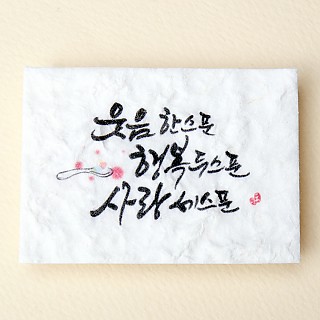 웃음 한스푼
행복 두스푼
사랑 세스푼